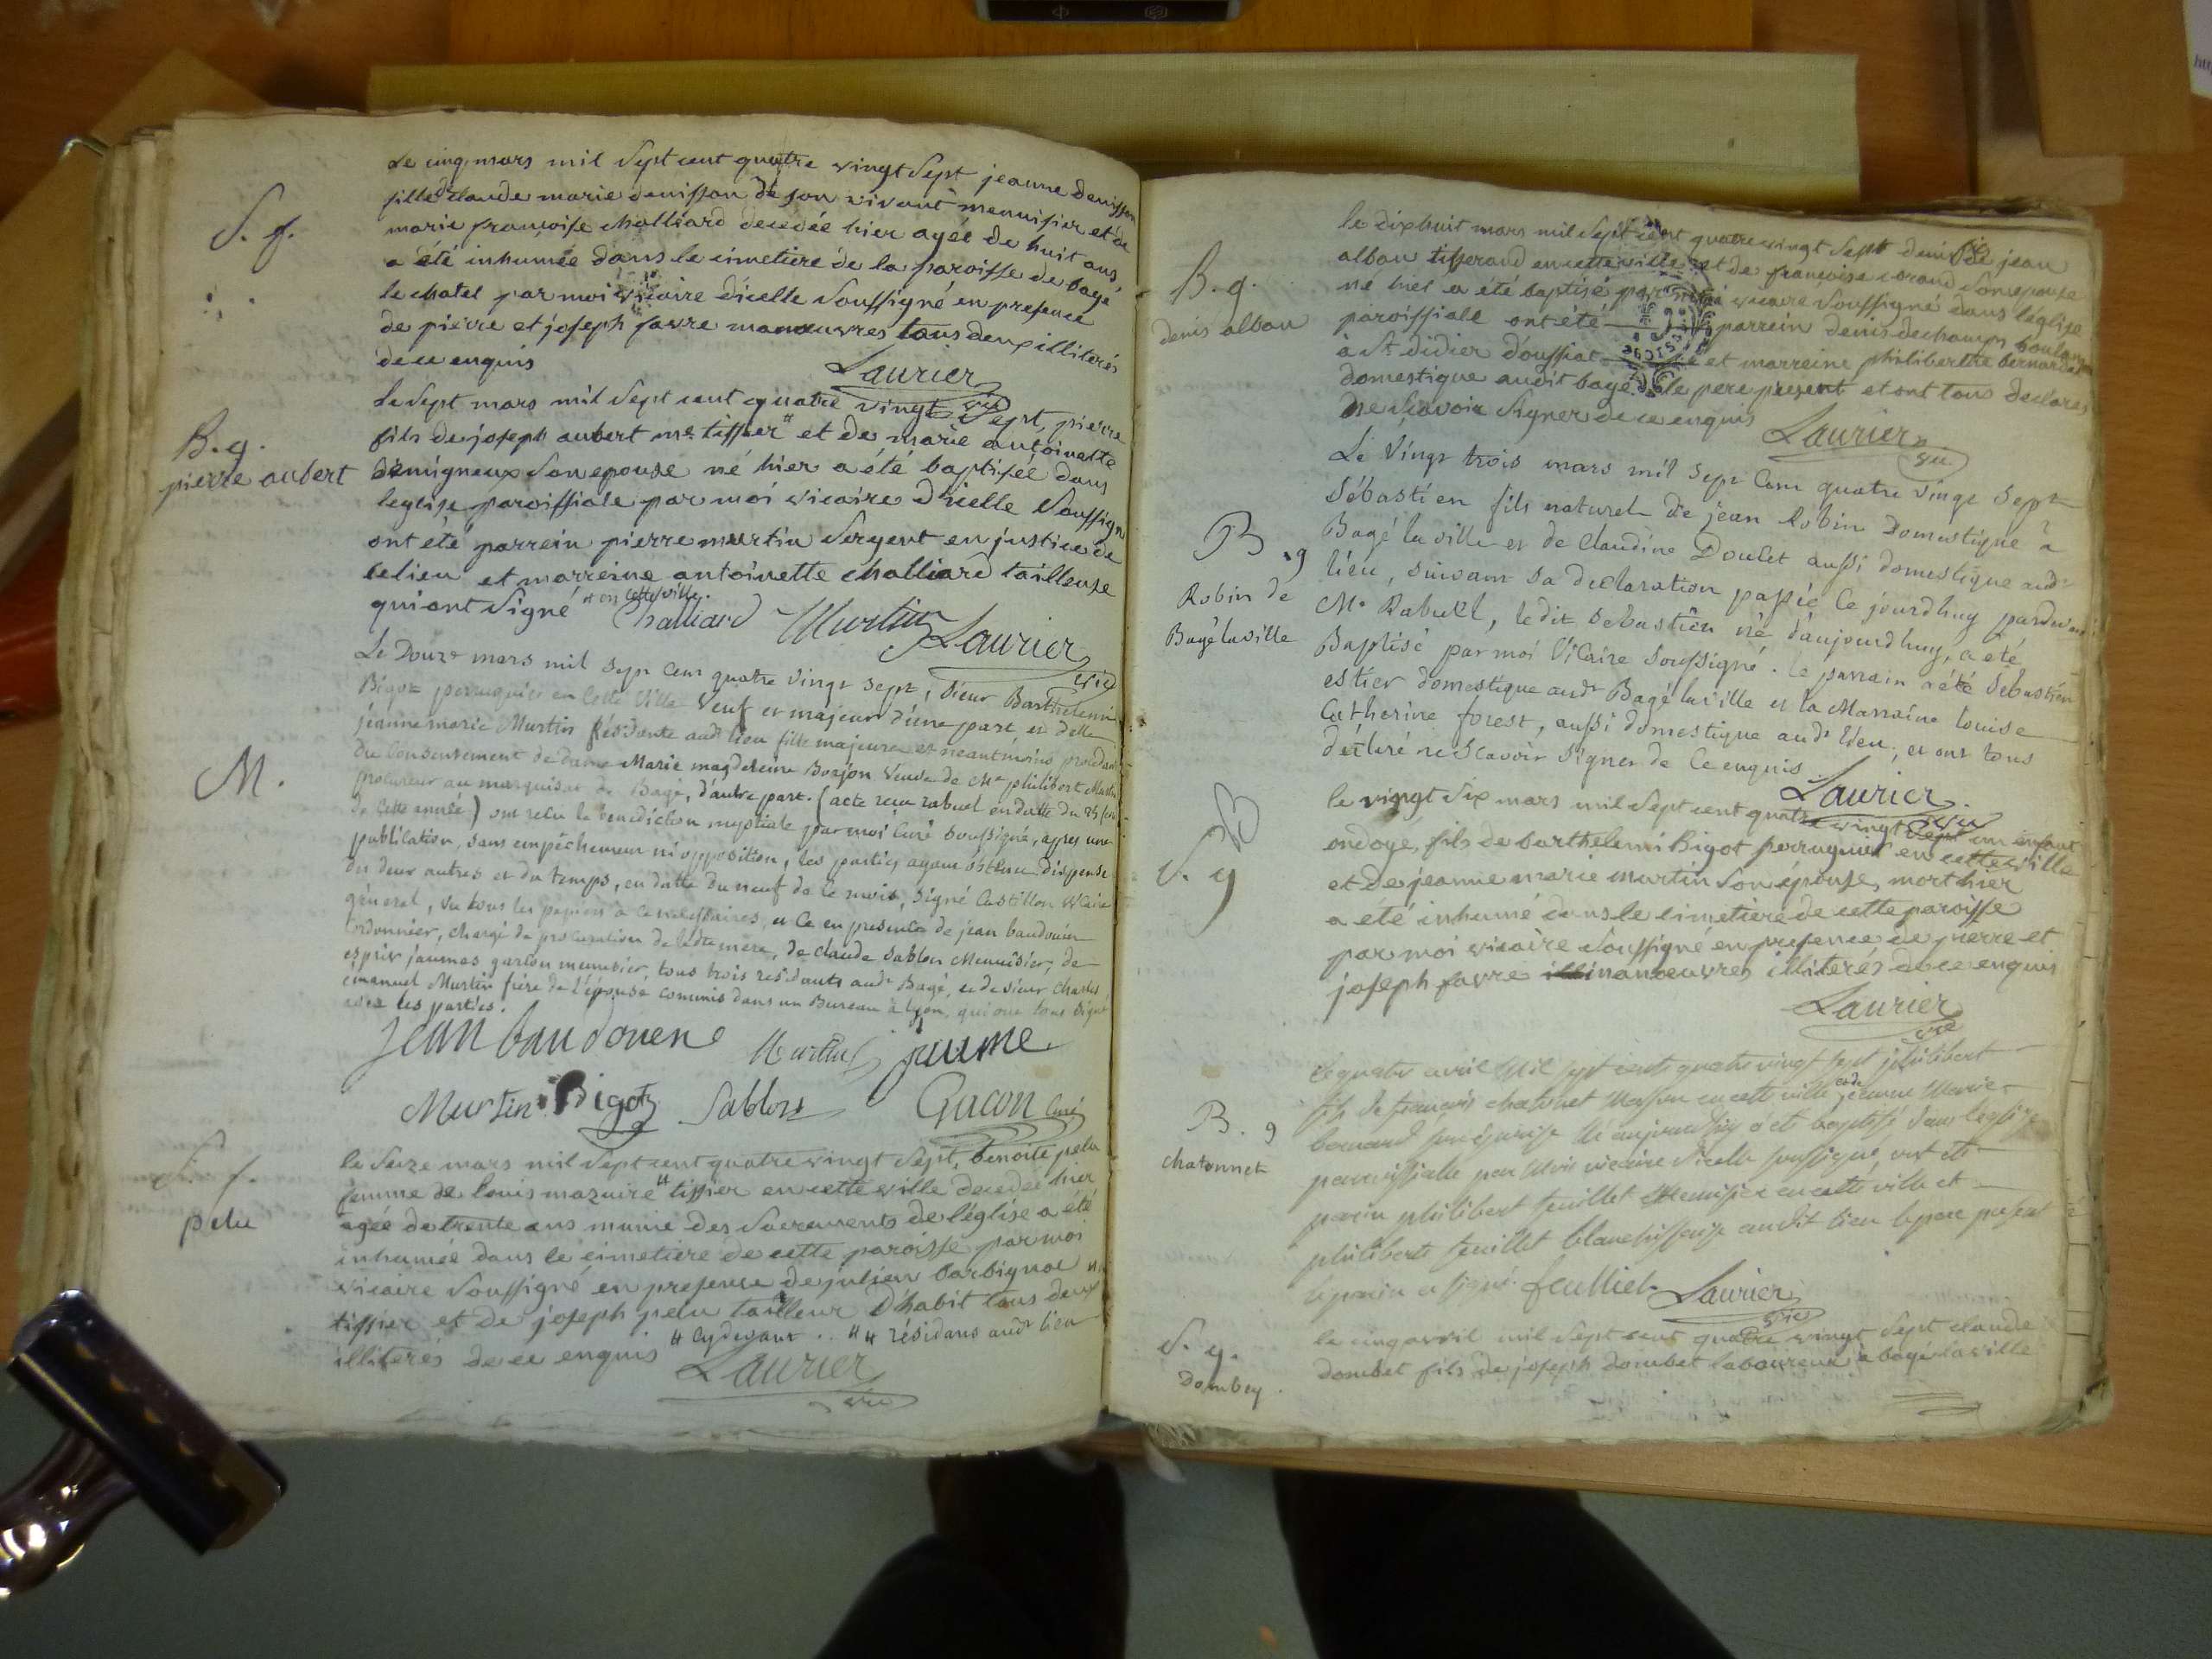 S. f.
Le cinq mars mil Sept cent quatre vingt Sept jeanne denisson
fille de claude marie denisson de son vivant menuisier et de
marie françoise challiard decedée hier agée de huit ans,
a été inhumée dans le cimetiere de la paroisse de bagé
le chatel par moi vicaire d'icelle Soussigné en presence
de pierre et joseph favre manœuvres tous deux illiterés
de ce enquis
Laurier
vic
B. g.
pierre aubert
Le Sept mars mil Sept cent quatre vingt Sept, pierre
fils de joseph aubert me tissier # et de marie antoinette
demigneux Son epouse né hier a été baptisée dans
leglise paroissiale par moi vicaire d'icelle Soussigné
ont été parrein pierre martin Sergent en justice de
ce lieu et marreine antoinette challiard tailleuse
qui ont Signé # en cette ville.
Challiard Martin Laurier
vic
M.
Le Douze mars mil Sept Cent quatre vingt Sept, Sieur Barthelemi
Bigot perruquier en Cette Ville Veuf et majeur d'une part, et delle
jeanne marie Martin Résidante audt lieu fille majeure et neantmoins procédant
du Consentement de dame Marie magdeleine Borjon Veuve de Me philibert Martin
procureur au marquisat de Bagé, d'autre part. (acte reçu rabuel en datte du 25
de Cette année) ont reçu la bénédiction nuptiale par moi Curé Soussigné, apres une
publication, sans empêchement ni opposition, les parties ayant obtenu dispense
des deux autres et du temps, en datte du neuf de ce mois, signé Castillon Vicaire
général, vu tous les papiers a ce nécessaires, et ce en presence de jean baudouin
Cordonnier, chargé de procuration de ladte mere, de claude Sablon Menuisier, de
esprit jaumes garçon menuisier, tous trois residants audt Bagé, et de sieur Charles
emanuel Martin frère de l'épouse commis dans un Bureau à lyon, qui ont tous Signé
avec les parties.
Jean baudouen Martin jaume
Martin Bigot Sablon Gacon Curé
S. f.
pelu
le Seize mars mil Sept cent quatre vingt Sept, benoite pelu
femme de louis mazuire # tissier en cette ville decedée hier
agée de trente ans munie des Sacrements de l'église a été
inhumée dans le cimetiere de cette paroisse par moi
vicaire Soussigné en presence de julien barbignac ##
tissier et de joseph pelu tailleur d'habit tous deux
illiterés de ce enquis # cy devant .. ## résidans audt lieu
Laurier
vic
B. g.
denis alban
le dixhuit mars mil Sept cent quatre vingt Sept denis fils de jean
alban tisserand en cette ville et de françoise corand Son epouse
né hier a été baptisé par moi vicaire Soussigné dans leglise
paroissiale ont été parrein denis dechamps
à St didier d'oussiat et marreine philiberthe bernard
domestique audit bagé le pere present et ont tous declarés
ne Scavoir Signer de ce enquis
Laurier
vic
B. g
Robin de
Bagé la ville
Le Vingt trois mars mil Sept Cent quatre Vingt Sept
Sébastien fils naturel de jean Robin Domestique à
Bagé la ville et de Claudine Doulet aussi domestique audt
lieu, suivant sa declaration passée Ce jourdhuy pardevant
Me Rabuel, ledit Sebastien né d'aujourdhuy, a été
Baptisé par moi Vicaire Soussigné. le parrain a été Sébastien
estier domestique audt Bagé la ville et la Marraine louise
Catherine forest, aussi domestique audt lieu, et ont tous
déclaré ne Scavoir Signer de Ce enquis
Laurier
vic
B
S. g
le vingt Six mars mil Sept cent quatre vingt Sept un enfant
ondoyé, fils de barthelemi Bigot perruquier en cette ville
et de jeanne marie martin Son épouse, mort hier
a été inhumé dans le cimetiere de cette paroisse
par moi vicaire Soussigné en presence de pierre et
joseph favre manœuvres illiterés de ce enquis
Laurier
vic
B. g
chatonnet
Le quatre avril Mil sept cent quatre vingt sept philibert
fils de françois chatonet Masson en cette ville, et de jeanne Marie
bernard son épouse né aujourdhuy a été baptisé dans leglise
parroissialle par Moi vicaire d'icelle soussigné, ont été
parin philibert feuillet Menuisier en cette ville et
philiberte feuillet blanchisseuse audit lieu le pere present
le parin a signé. feulliet Laurier
vic
S. g.
Dombey
le cinq avril mil Sept cent quatre vingt Sept claude
dombet fils de joseph dombet laboureur à bagé la ville